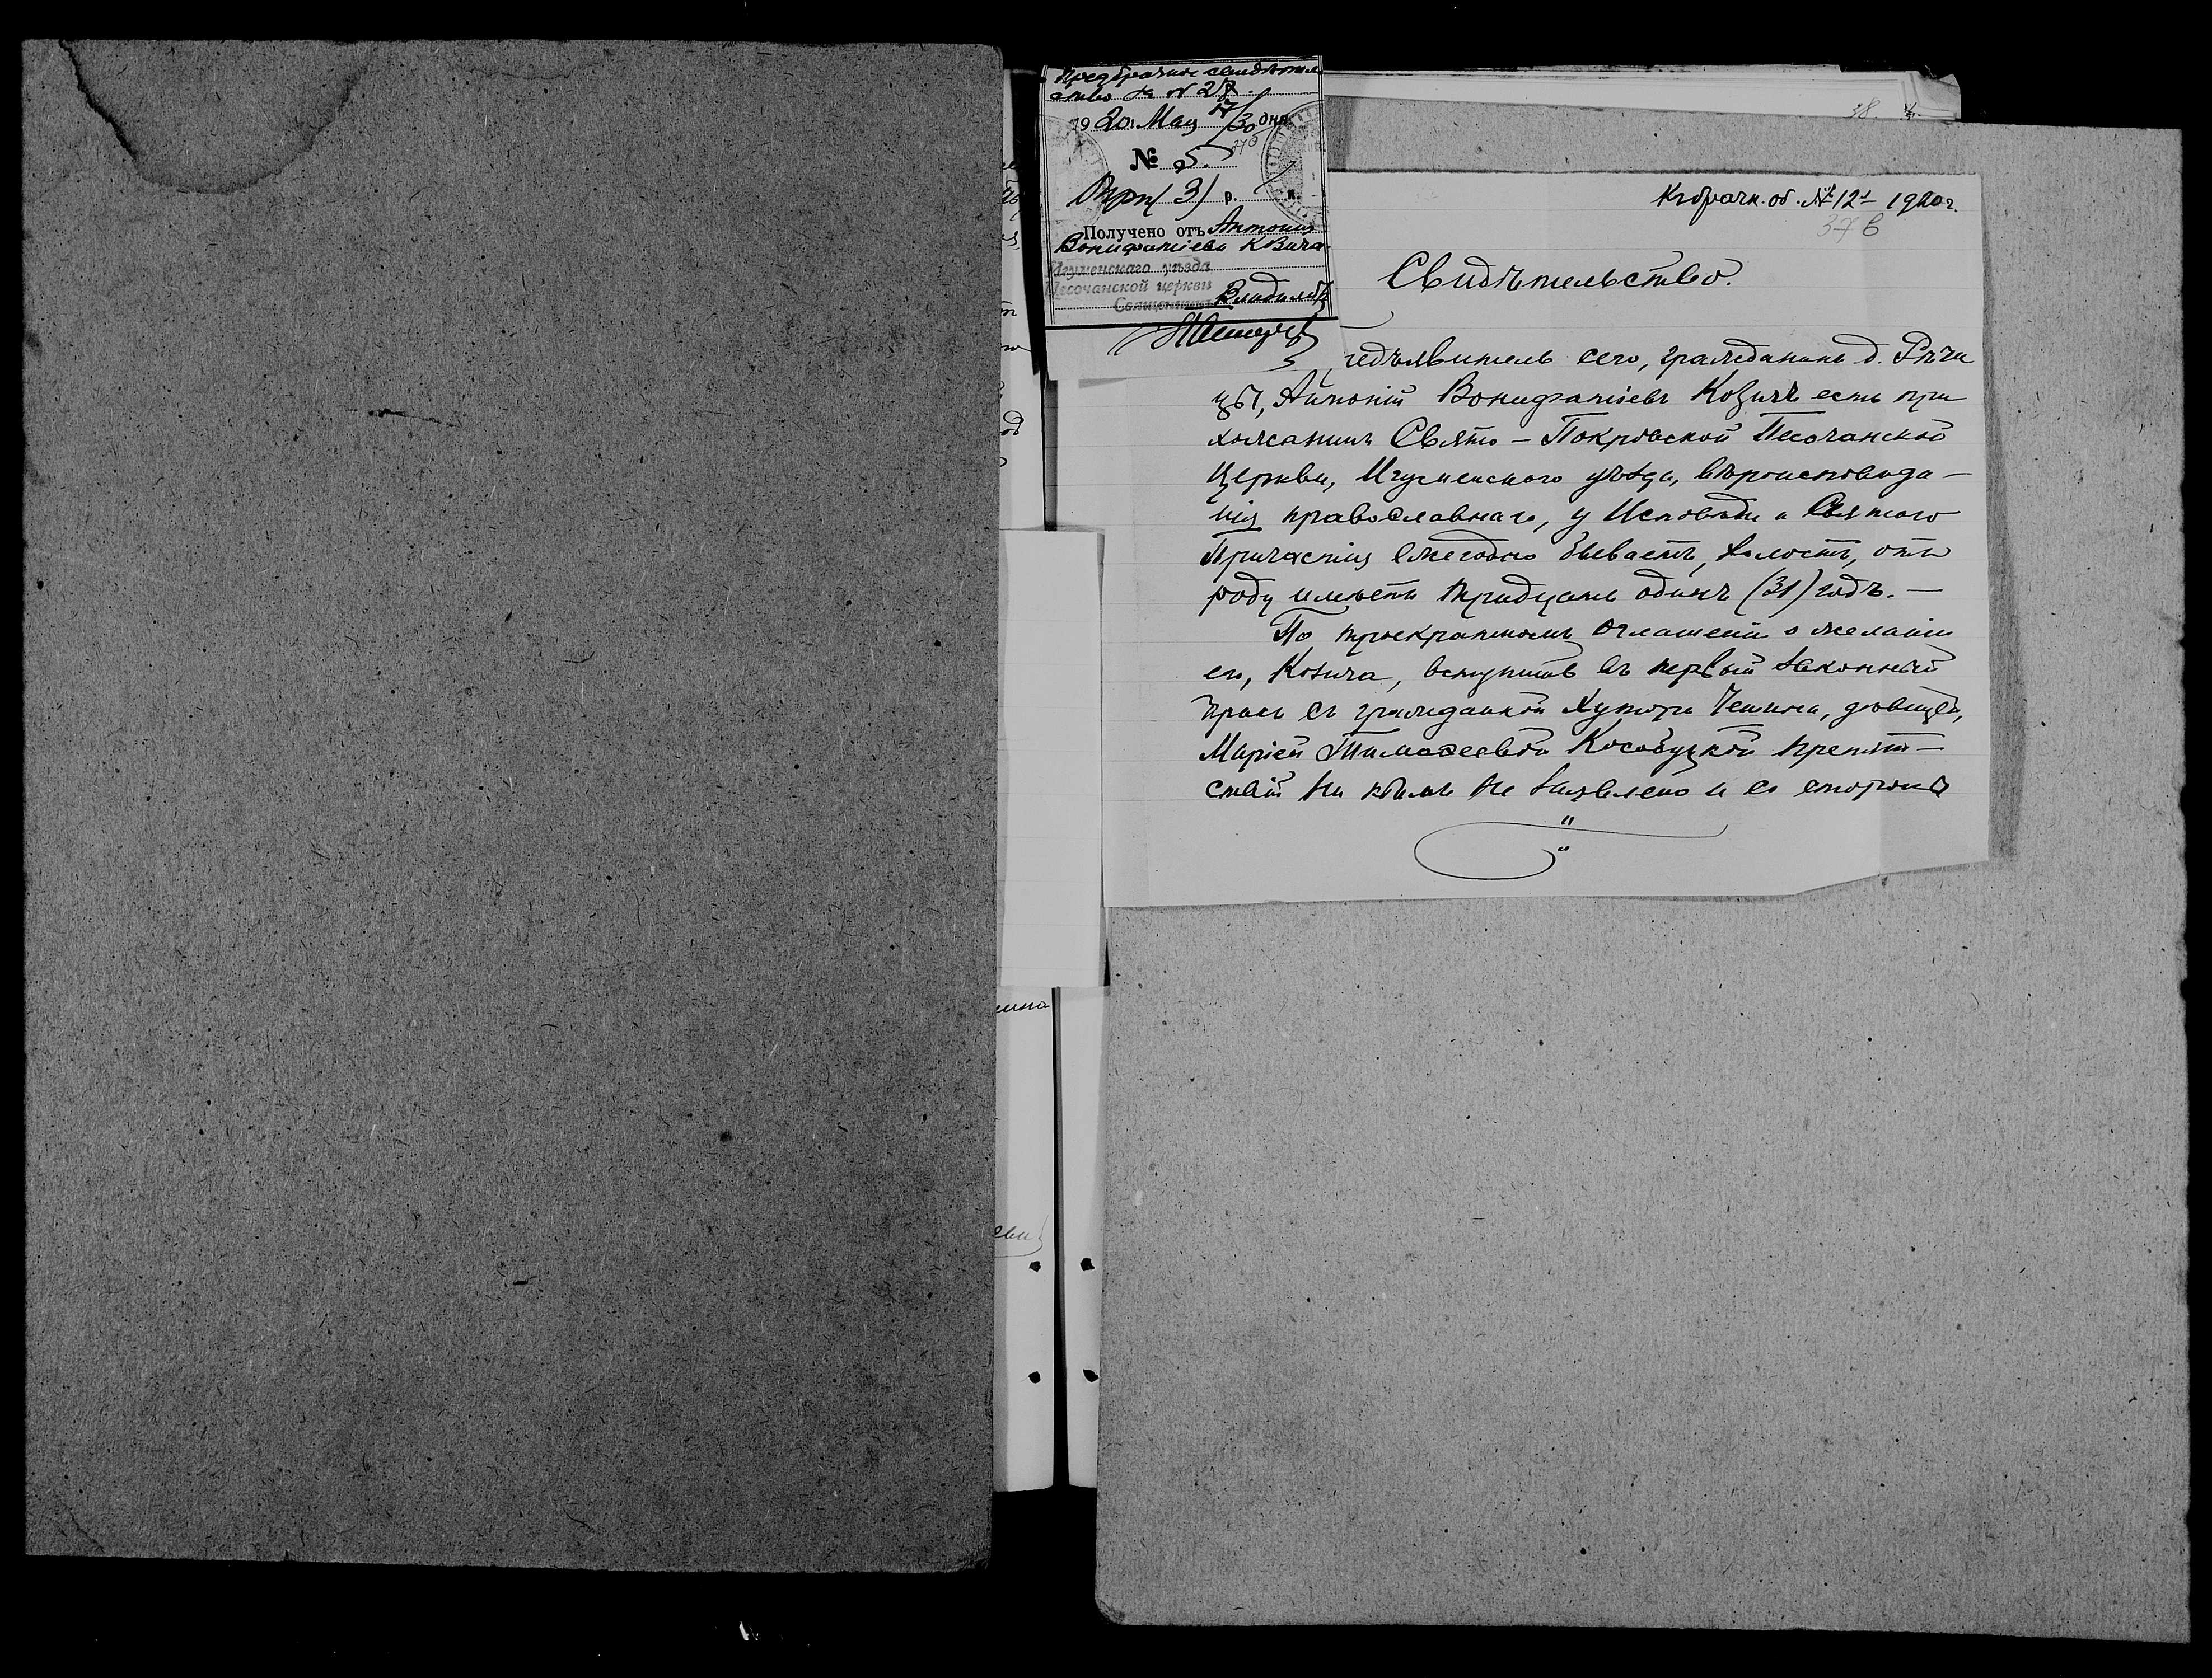 Предбрачное свидѣтель
ство за № 28.
1920. Мая 17/30 дня
№ 5.
Три (3) р. к.
Получено отъ Антонія
Вонифатіева Козича
Игуменскаго уѣзда
Песочанской церкви
Священникъ Владиміръ
38
Къ брачн. об. № 12 - 1920 г.
37 б
Свидѣтельство.
редъявитель сего, гражданинъ д. Рѣчи
цы, Антоній Вонифатіевъ Козичъ есть при
хожанинъ Свято - Покровской Песочанской
Церкви, Игуменского уѣзда, вѣроисповѣда-
нія православнаго, у Исповѣди и Святого
Причастія ежегодно бываетъ, холостъ, отъ
роду имѣетъ тридцать одинъ (31) годъ. -
По троекратномъ оглашеніи о желаніи
его, Козича, вступить въ первый законный
бракъ съ гражданкой хутора, дѣвицей,
Маріей Тимоѳеевой Кособуцкой препят-
ствій ни кѣмъ не заявлено и со стороны